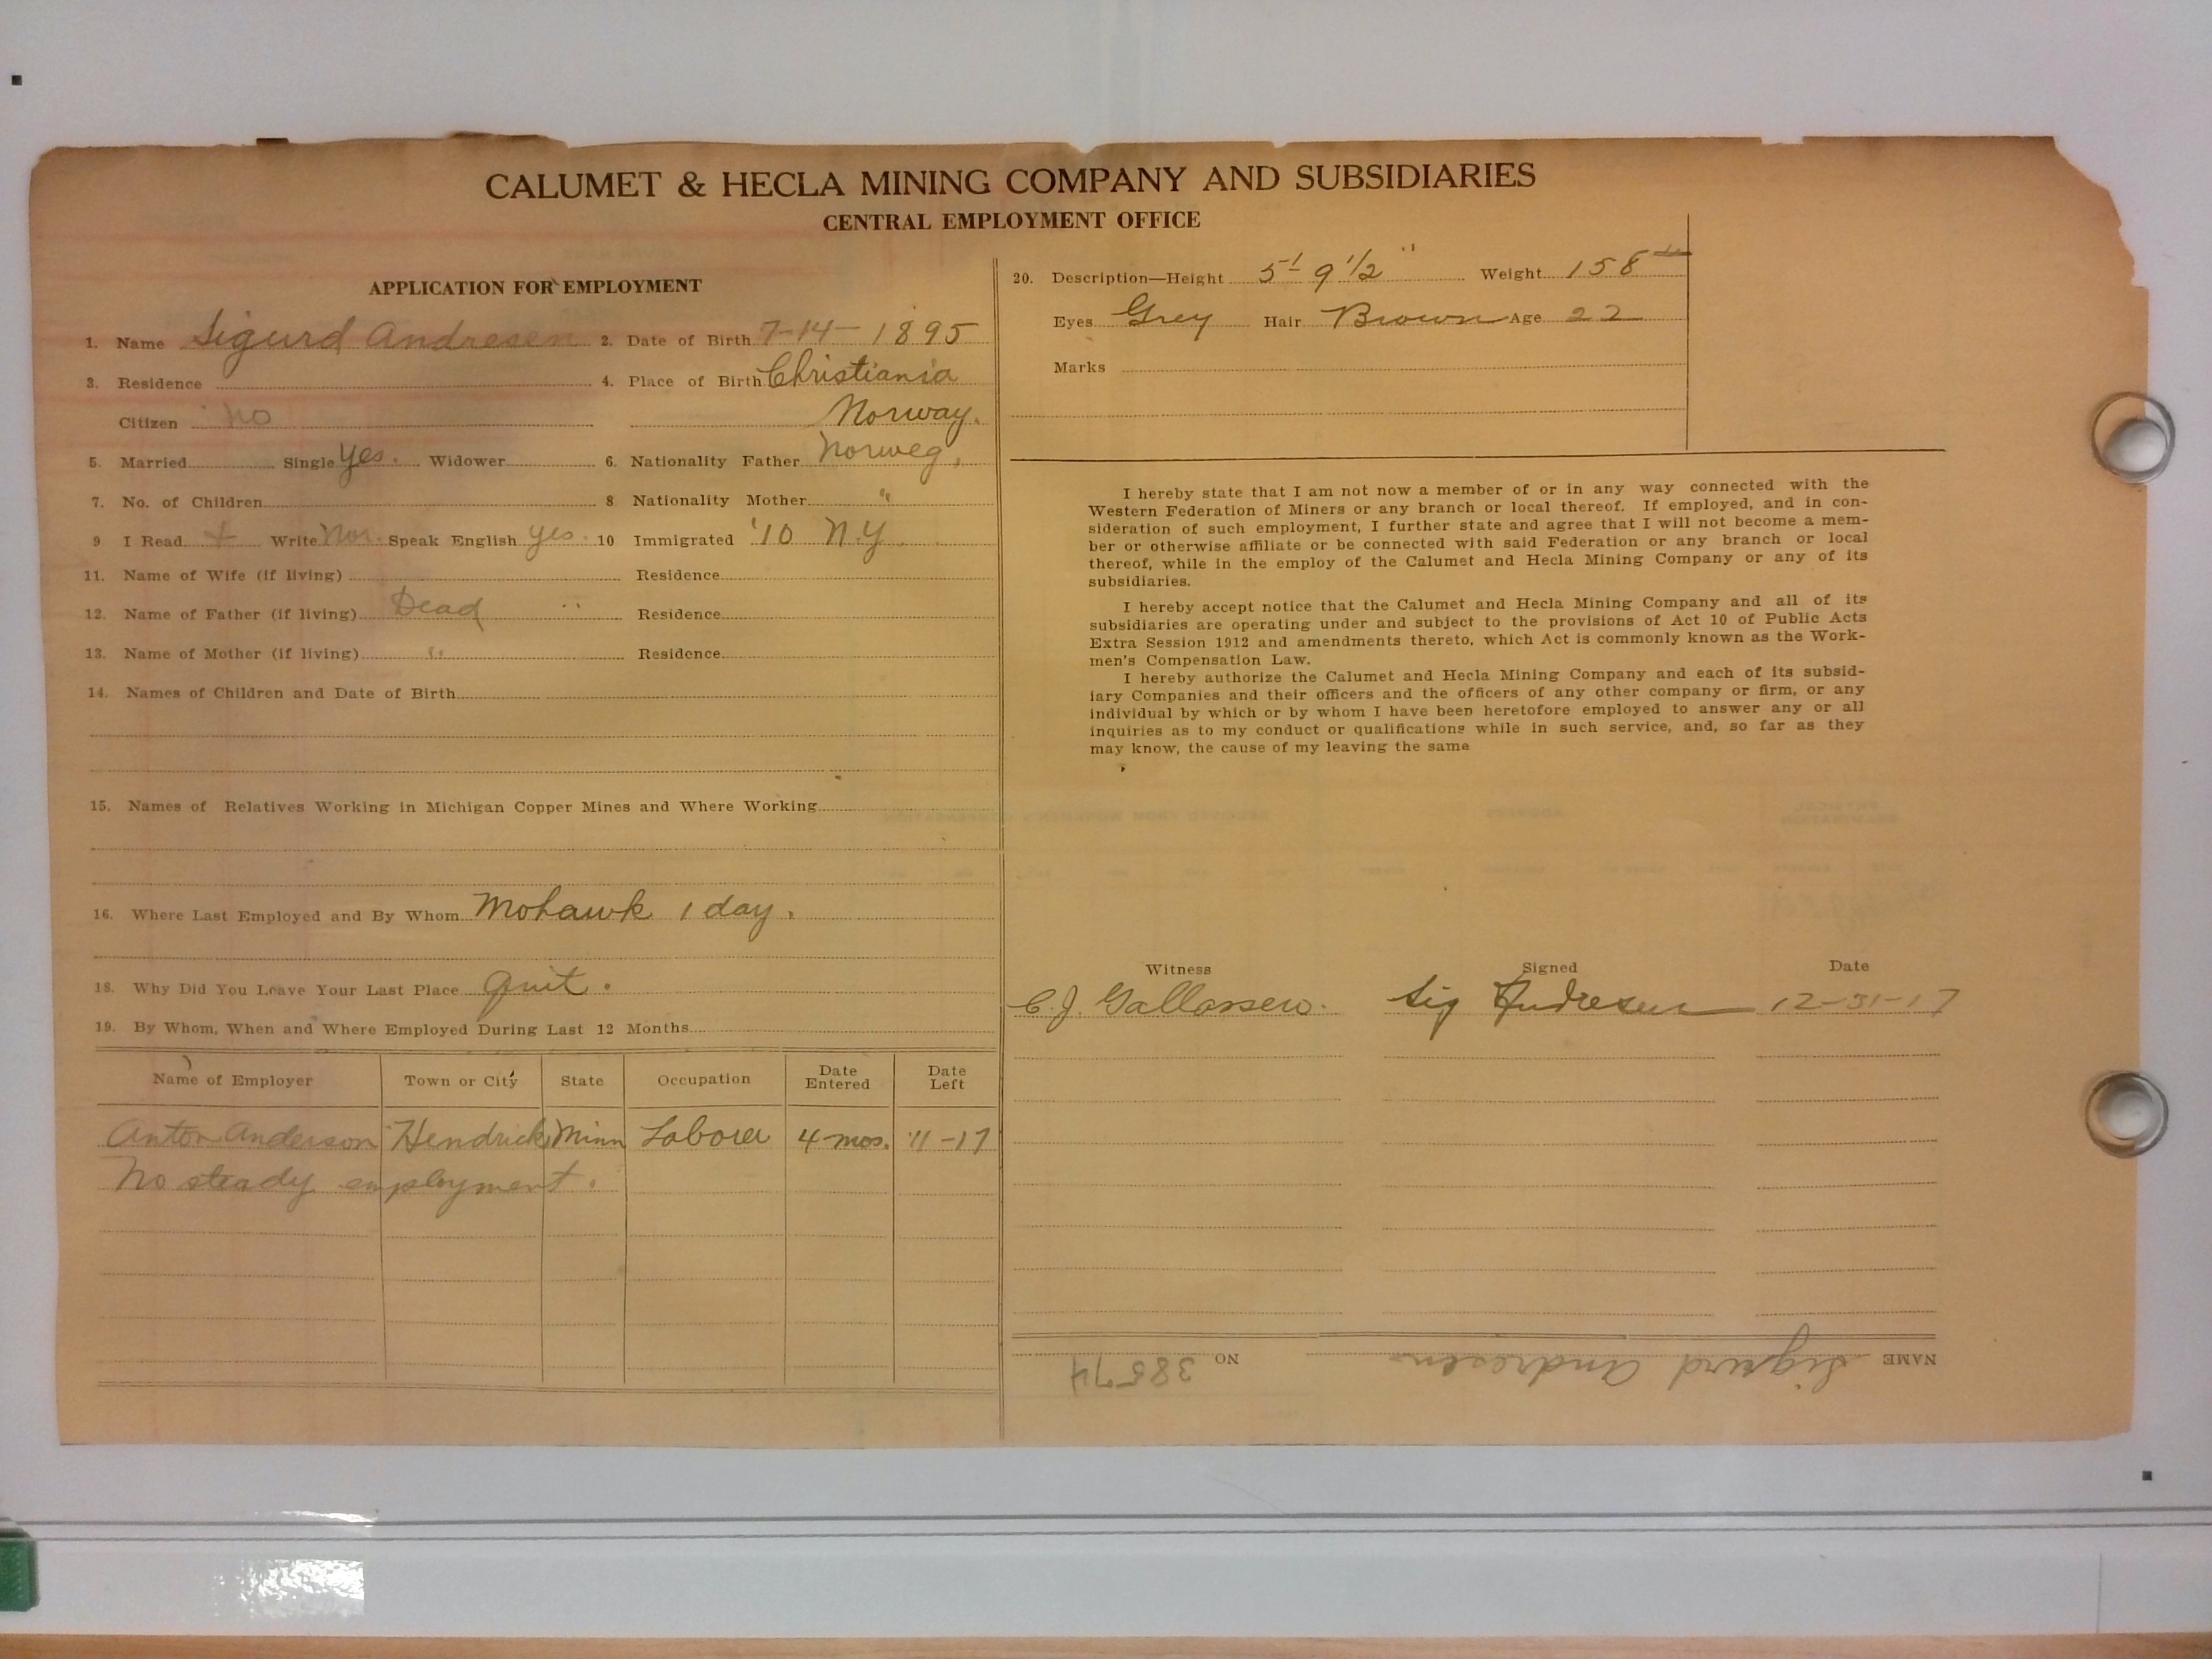 CALUMET & HECLA MINING COMPANY AND SUBSIDIARIES
CENTRAL EMPLOYMENT OFFICE
APPLICATION FOR EMPLOYMENT
1. Name Sigurd Andresen 2. Date of Birth 7-14-1895
3. Residence 4. Place of Birth Christiania
Citizen No Norway.
5. Married Single Yes. Widower 6. Nationality Father Norweg.
7. No. of Children 8 Nationality Mother "
9 I Read + Write Nor. Speak English Yes. 10 Immigrated '10 N.Y.
11. Name of Wife (if living) Residence
12. Name of Father (if living) Dead Residence
13. Name of Mother (if living) " Residence
14. Names of Children and Date of Birth
15. Names of Relatives Working in Michigan Copper Mines and Where Working
16. Where Last Employed and By Whom Mohawk 1 day.
18. Why Did You Leave Your Last Place Quit.
19. By Whom, When and Where Employed During Last 12 Months
Name of Employer Town or City State Occupation Date Entered Date Left
Anton Anderson Hendrick Minn Laborer 4 mos. 11-17
No steady employment.
20. Description—Height 5' 9 1/2" Weight 158
Eyes Grey Hair Brown Age 22
Marks
I hereby state that I am not now a member of or in any way connected with the
Western Federation of Miners or any branch or local thereof. If employed, and in con-
sideration of such employment, I further state and agree that I will not become a mem-
ber or otherwise affiliate or be connected with said Federation or any branch or local
thereof, while in the employ of the Calumet and Hecla Mining Company or any of its
subsidiaries.
I hereby accept notice that the Calumet and Hecla Mining Company and all of its
subsidiaries are operating under and subject to the provisions of Act 10 of Public Acts
Extra Session 1912 and amendments thereto, which Act is commonly known as the Work-
men's Compensation Law.
I hereby authorize the Calumet and Hecla Mining Company and each of its subsid-
iary Companies and their officers and the officers of any other company or firm, or any
individual by which or by whom I have been heretofore employed to answer any or all
inquiries as to my conduct or qualifications while in such service, and, so far as they
may know, the cause of my leaving the same
Witness Signed Date
C. J. Sig Andresen 12-31-17
NAME Sigurd Andresen NO 38574